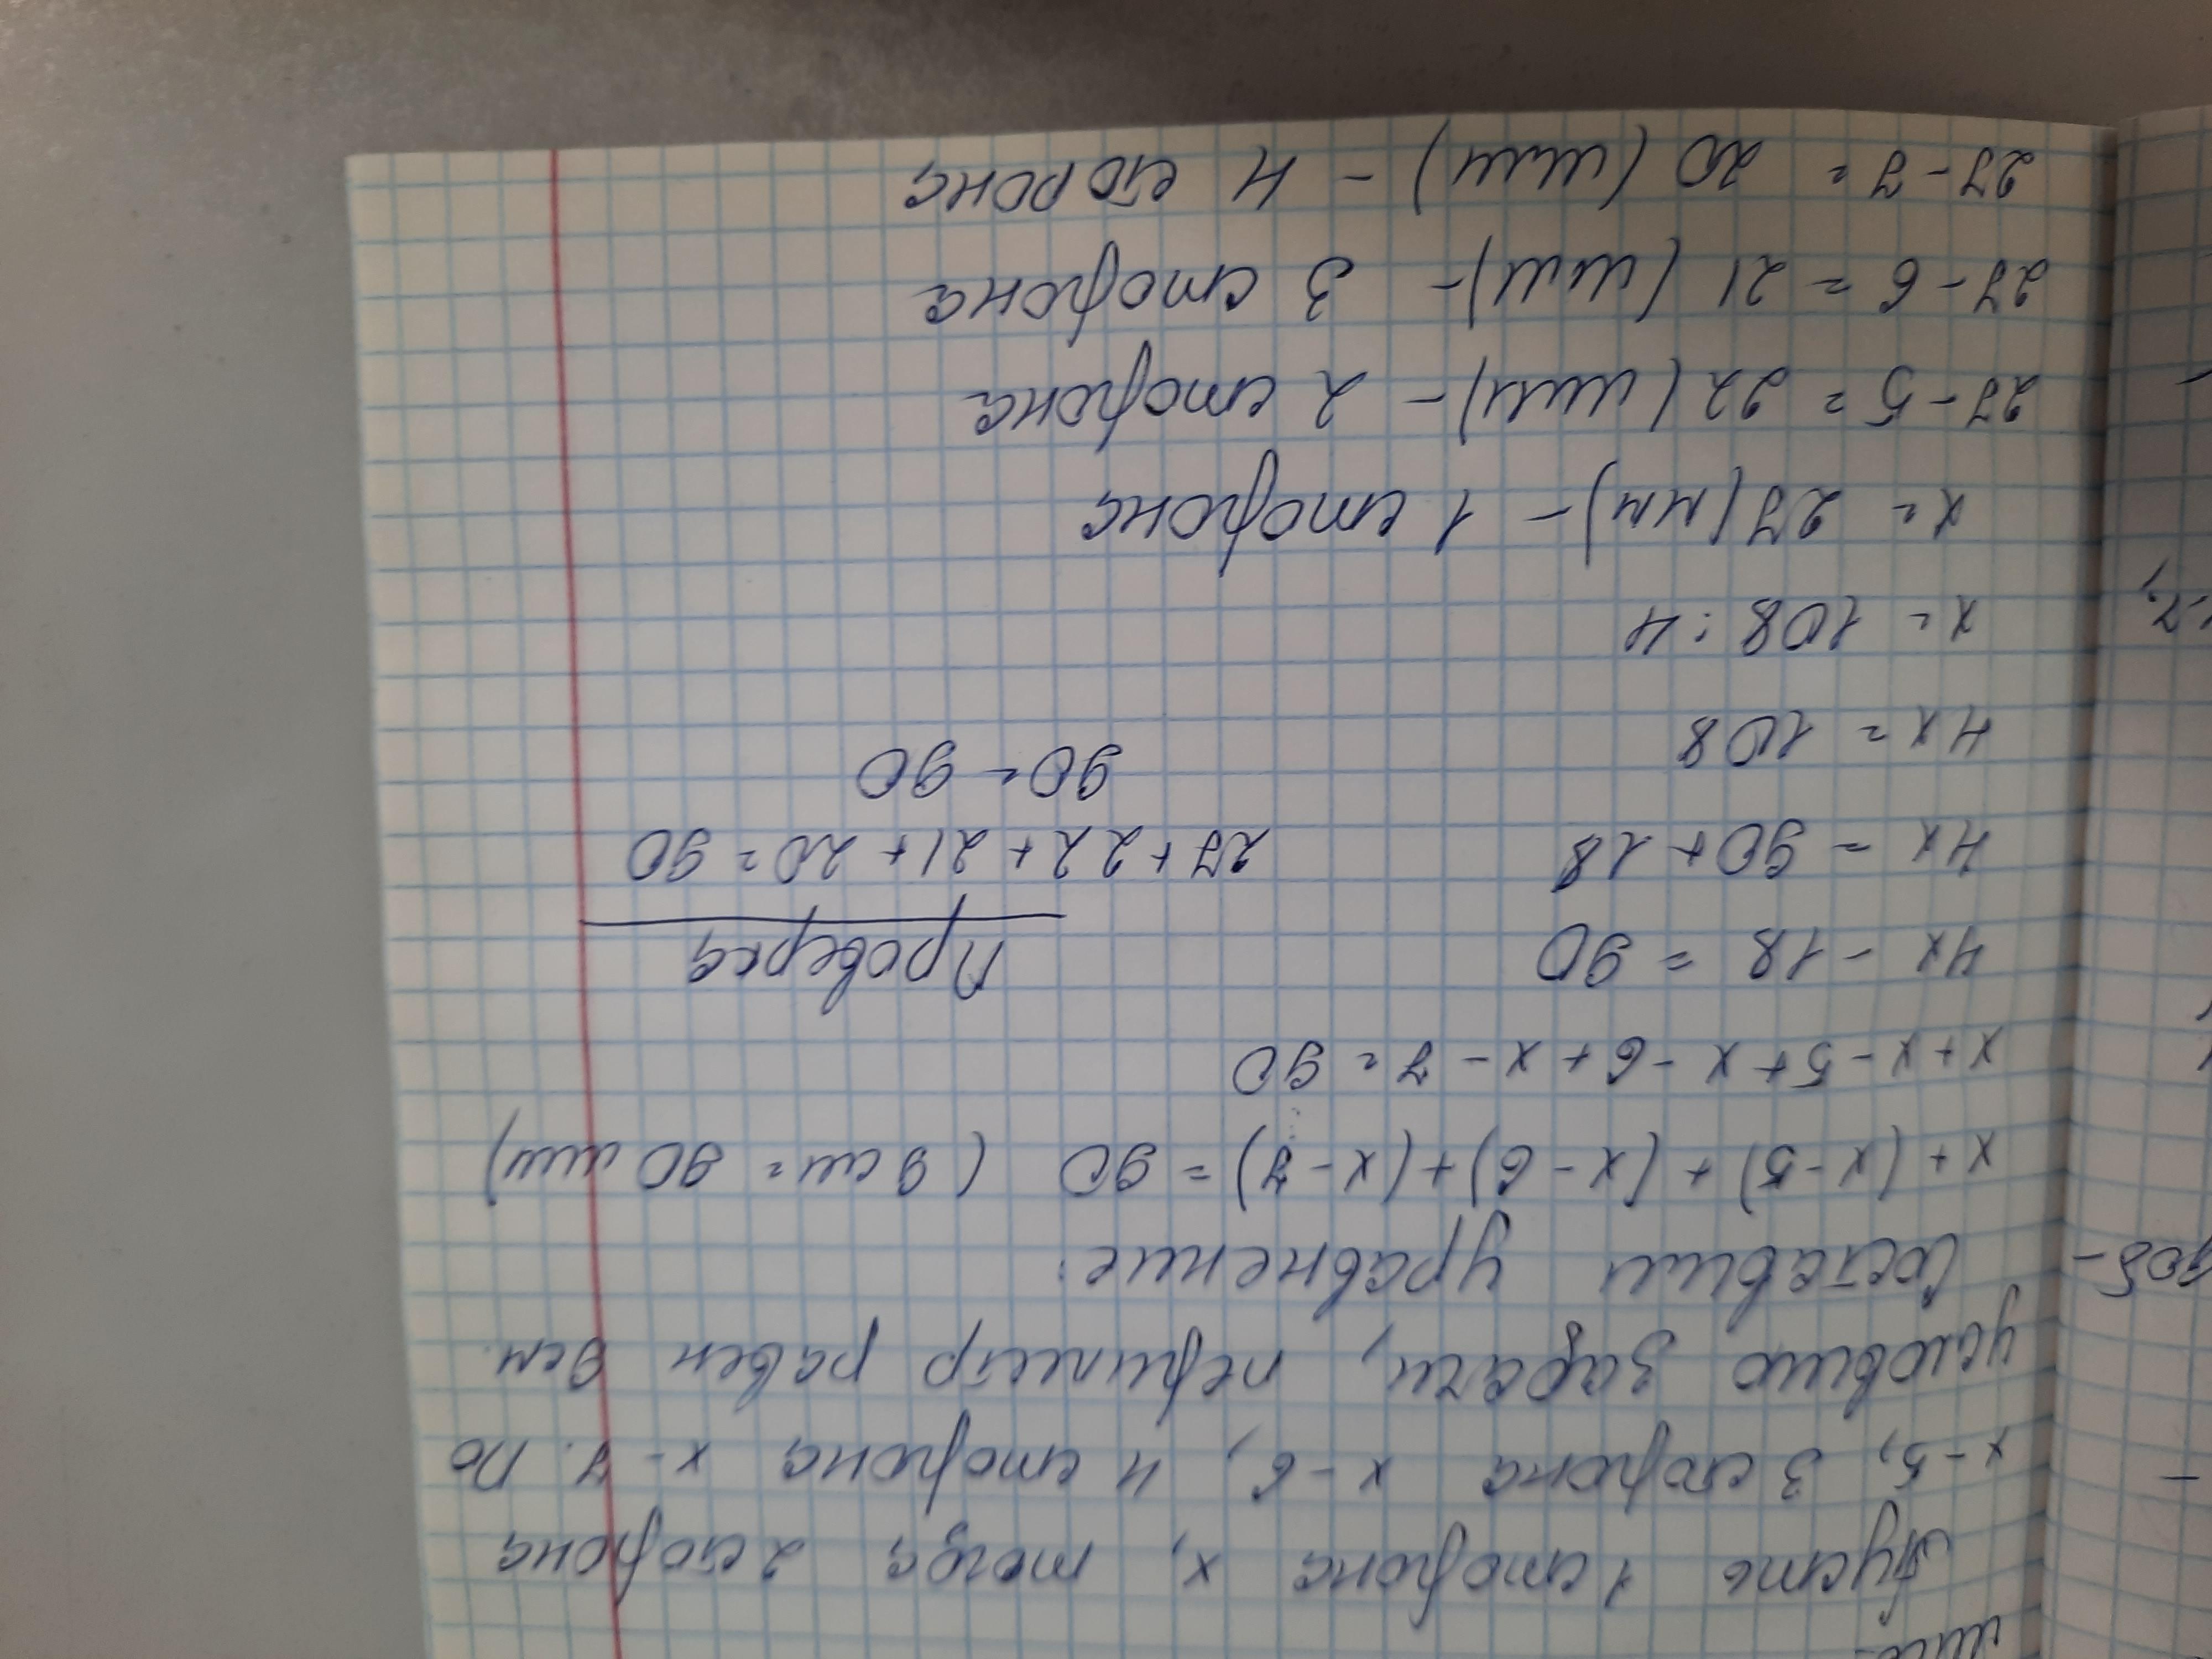 Пусть 1 сторона x, тогда 2 сторона
x-5, 3 сторона x-6, 4 сторона x-7. По
условию задачи, периметр равен 9см.
Составим уравнение:
x+(x-5)+(x-6)+(x-7)=90 (9 см = 90 мм)
x+x-5+x-6+x-7=90
4x-18=90 Проверка
4x=90+18 27+22+21+20=90
4x=108 90=90
x=108:4
x=27(мм)- 1 сторона
27-5=22(мм)- 2 сторона
27-6=21(мм)- 3 сторона
27-7=20(мм)- 4 сторона